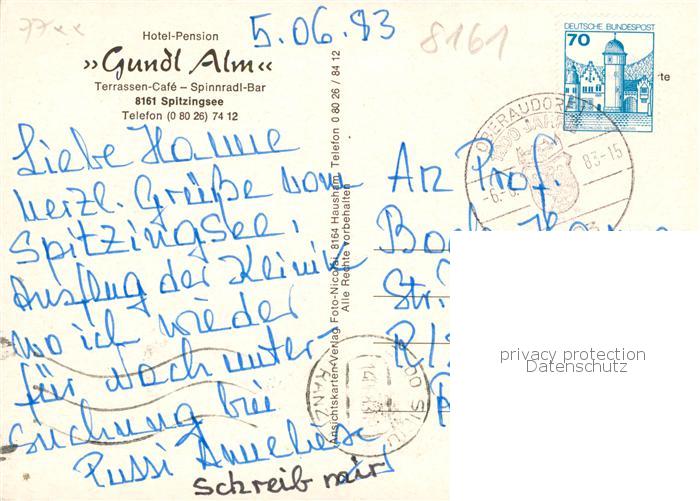 77xx
5.06.83
8161
Hotel-Pension
»Gundl Alm«
Terrassen-Café – Spinnradl-Bar
8161 Spitzingsee
Telefon (0 80 26) 74 12
DEUTSCHE BUNDESPOST
70
rte
OBERAUDORF
83-15
-6.-
Liebe Hanne
herzl. Grüße vom
Spitzingsee,
Ausflug der Klinik
wo ich wieder
für Nachunter-
suchung bin
Pussi Anneliese
Schreib mir!
Ansichtskarten-Verlag Foto-Nicolai, 8164 Hausham, Telefon 0 80 26 / 84 12
Alle Rechte vorbehalten
An Prof.
Str.
privacy protection
Datenschutz